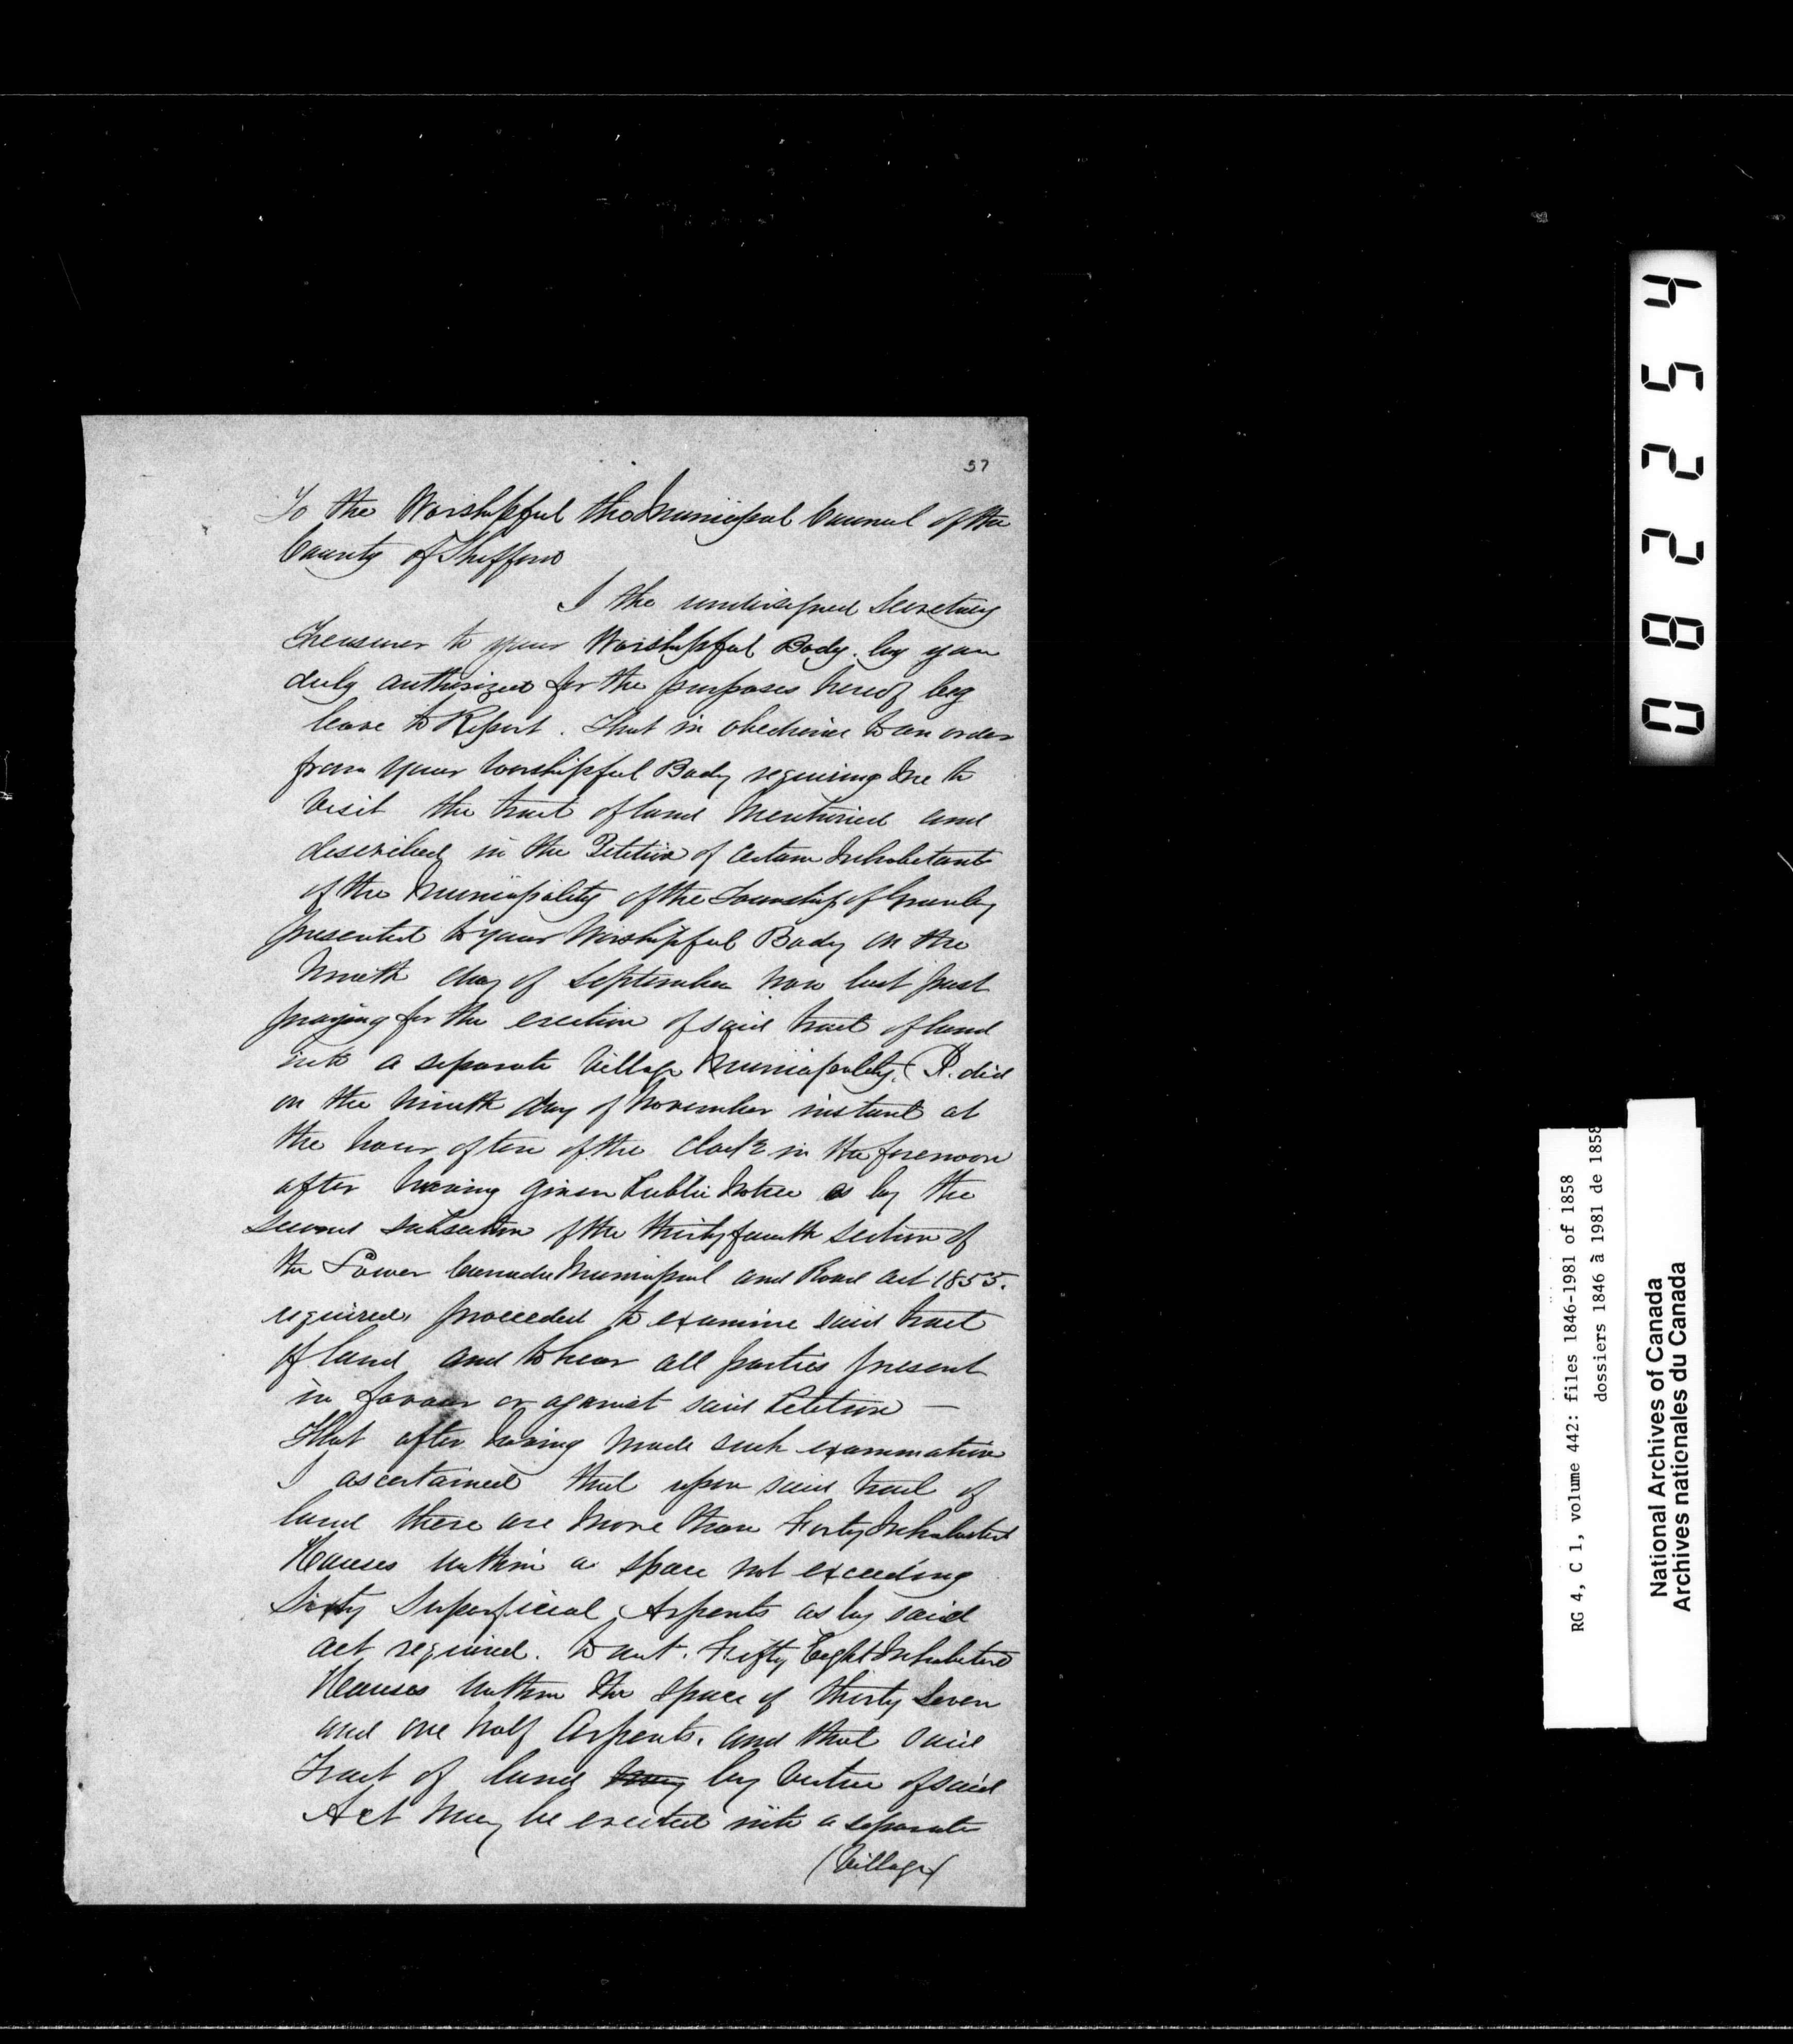 57
To the Worshipful the Municipal Council of the
County of Shefford
I the undersigned Secretary
Treasurer to your Worshipful Body. by you
duly authorized for the purposes hereof beg
leave to Report. That in obedience to an order
from your Worshipful Body requiring me to
visit the tract of land mentioned and
described in the Petition of certain Inhabitants
of the Municipality of the Township of Granby
presented to your Worshipful Body on the
Ninth day of September now last past
praying for the erection of said tract of land
into a separate Village Municipality. I. did
on the Ninth day of November instant at
the hour of ten of the clock in the forenoon
after having given Public Notice as by the
second subsection of the thirty fourth section of
the Lower Canada Municipal and Road Act 1855.
required, proceeded to examine said tract
of land and to hear all parties present
in favour or against said Petition —
That after having made such examination
I ascertained that upon said tract of
land there are more than Forty Inhabited
Houses within a space not exceeding
Sixty Superficial Arpents as by said
act required. to wit. Fifty Eight Inhabited
Houses within the space of thirty seven
and one half Arpents. and that said
Tract of land may by virtue of said
Act may be erected into a separate
(Village)
082254
RG 4, C 1, volume 442: files 1846-1981 of 1858
dossiers 1846 à 1981 de 1858
National Archives of Canada
Archives nationales du Canada